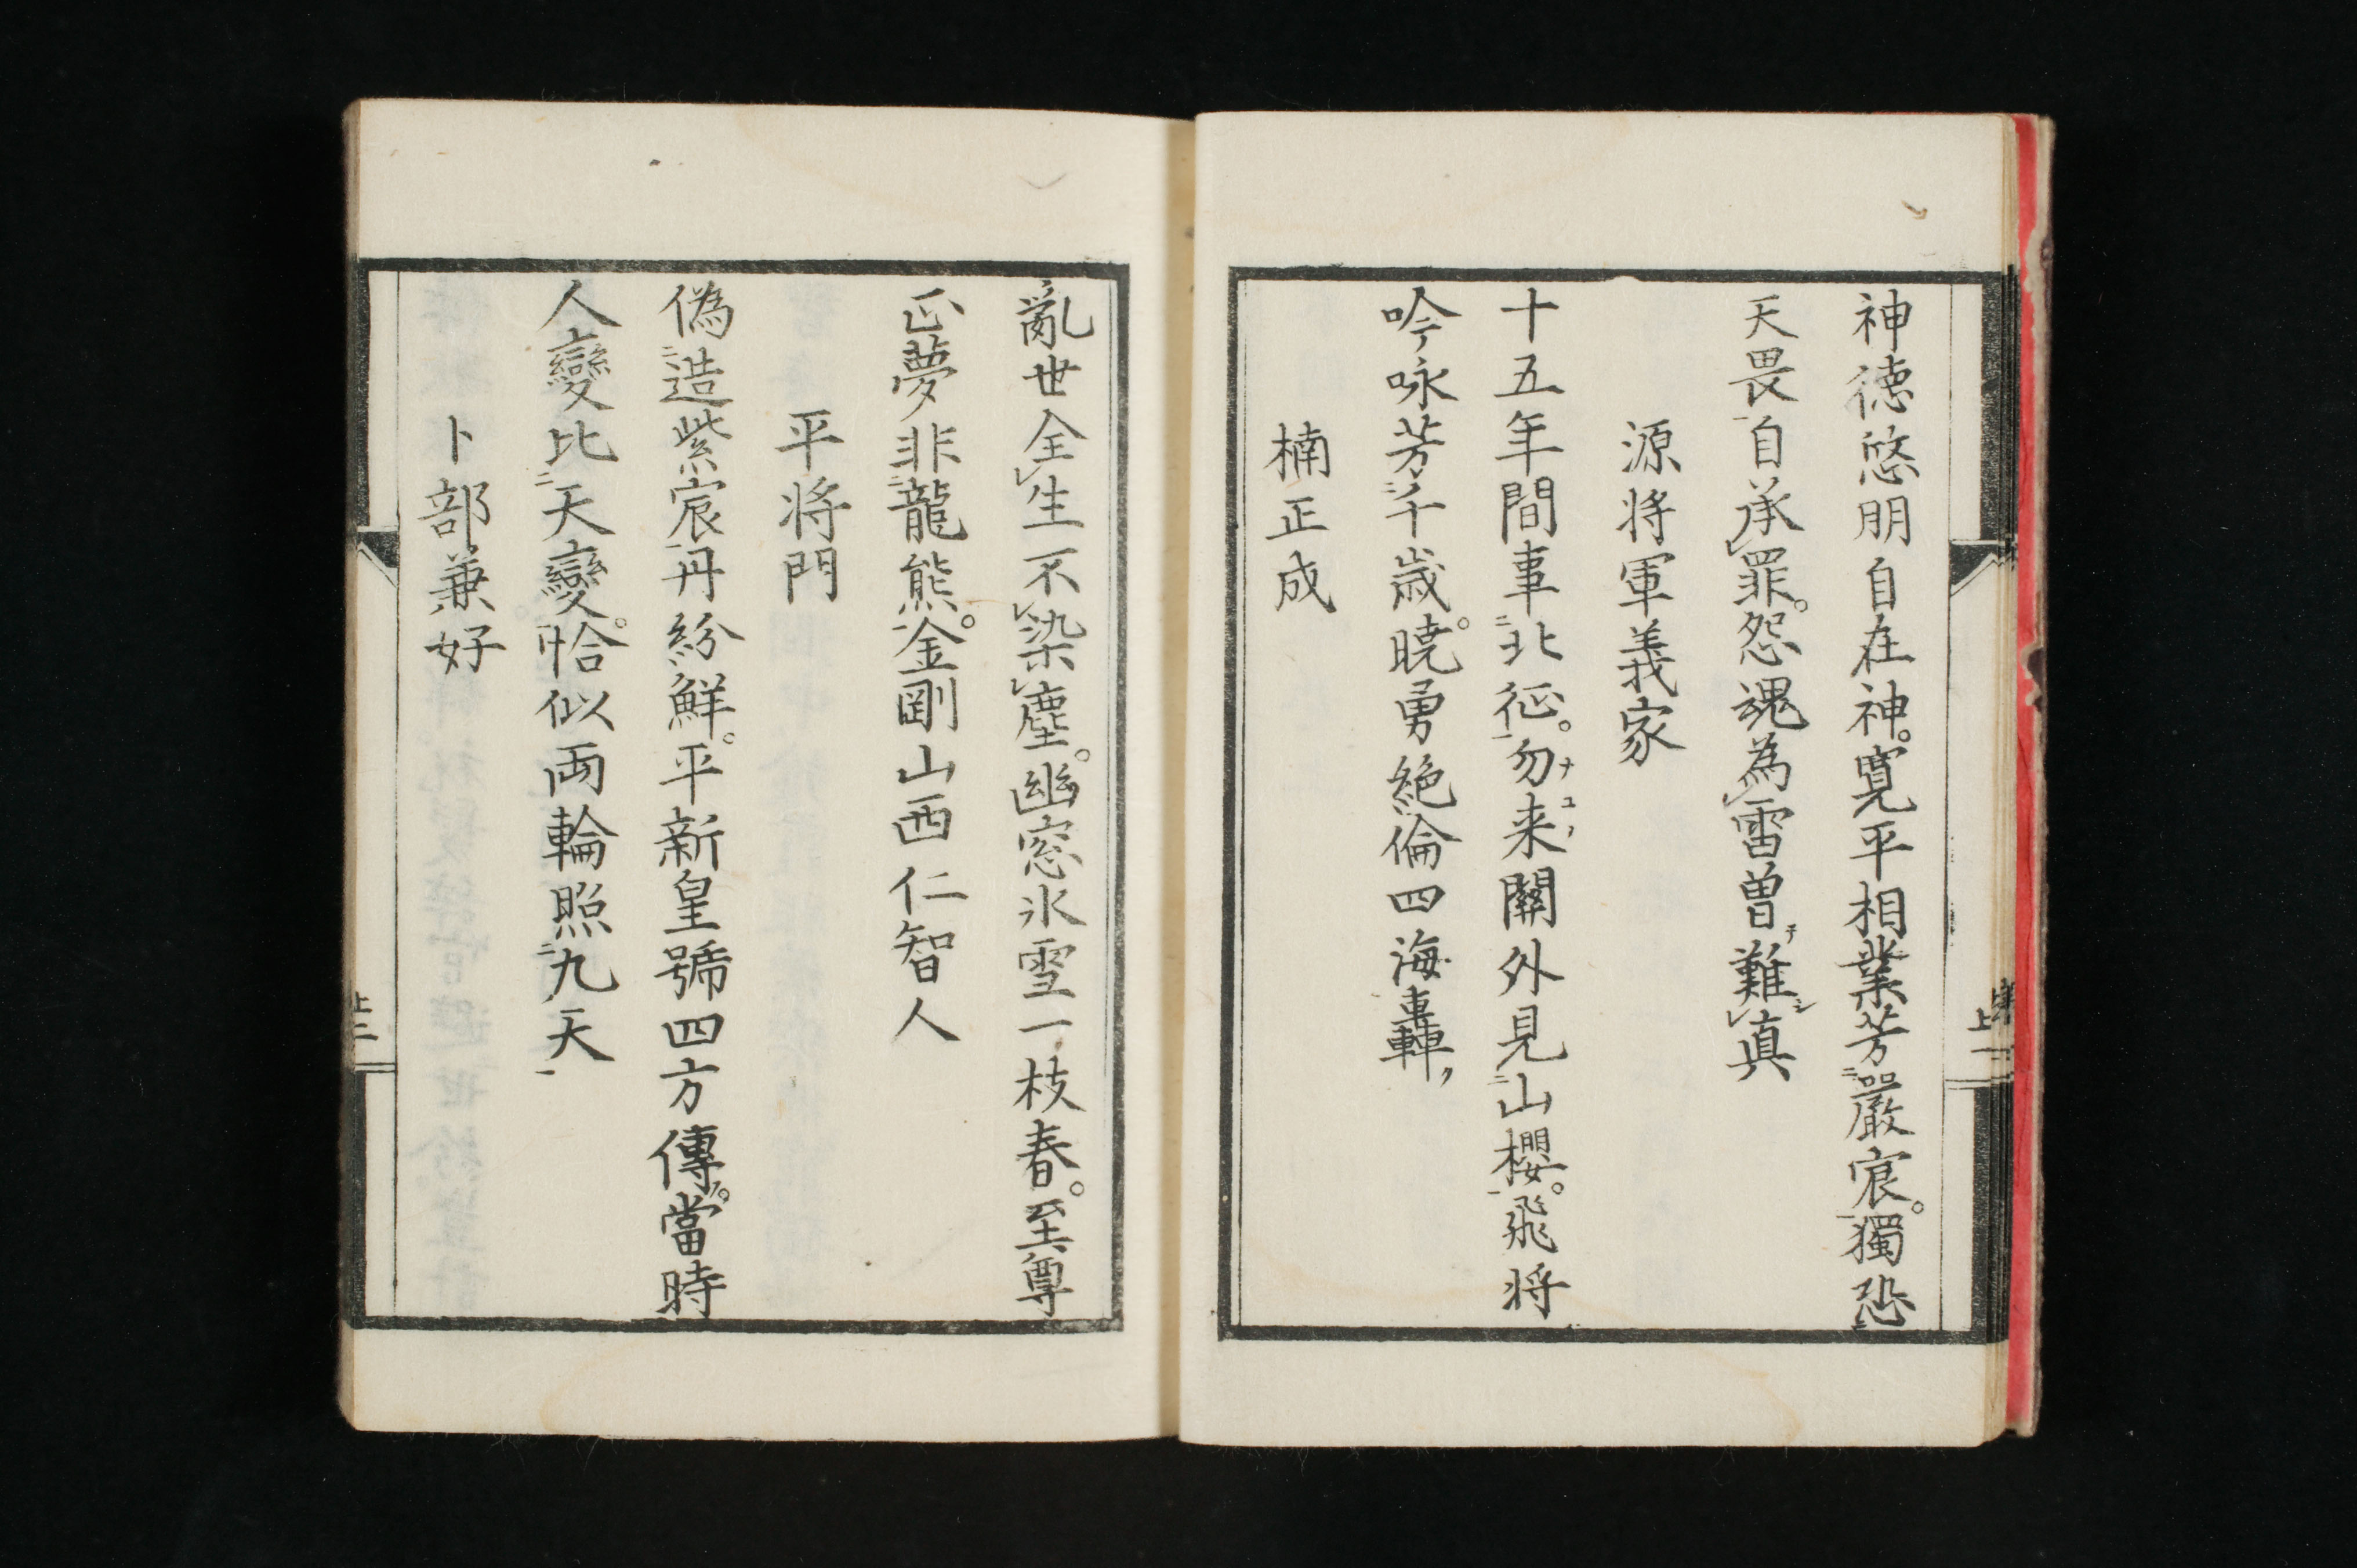 神徳悠朋自在神。寛平相業芳嚴宸。獨恐
天畏自承罪。怨魂為雷曽難真
源将軍義家
十五年間事北征。勿来關外見山櫻。飛将
吟咏芳千歳。暁勇絶倫四海轟
楠正成
亂世全生不染塵。幽窓氷雪一枝春。至尊
正夢非龍熊。金剛山西仁智人
平将門
偽造紫宸丹紛鮮。平新皇號四方傳。當時
人變比天變。恰似両輪照九天
卜部兼好